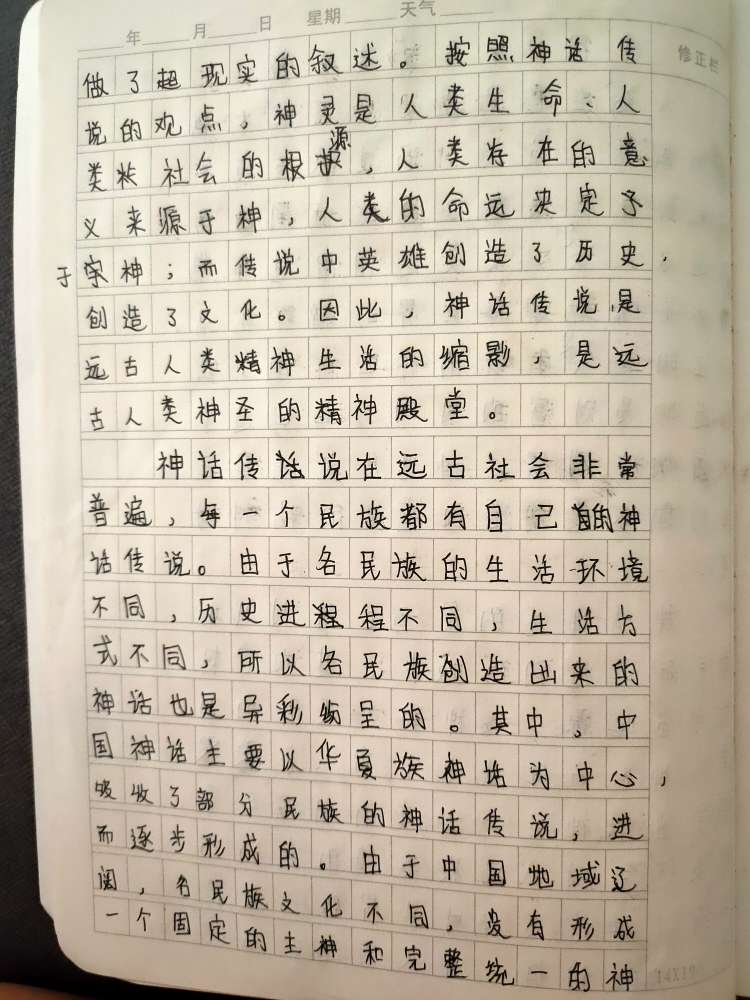 年 月 日 星期 天气
修正栏
做了超现实的叙述。按照神话传
说的观点，神灵是人类生命、人
类社会的根源，人类存在的意
义来源于神，人类的命运决定予
于宗神；而传说中英雄创造了历史，
创造了文化。因此，神话传说是
远古人类精神生活的缩影，是远
古人类神圣的精神殿堂。
神话传话说在远古社会非常
普遍，每一个民族都有自己的神
话传说。由于各民族的生活环境
不同，历史进程程不同，生活方
式不同，所以各民族创造出来的
神话也是异彩纷呈的。其中。中
国神话主要以华夏族神话为中心，
吸收了部分民族的神话传说，进
而逐步形成的。由于中国地域辽
阔，各民族文化不同，没有形成
一个固定的主神和完整统一的神
14X19